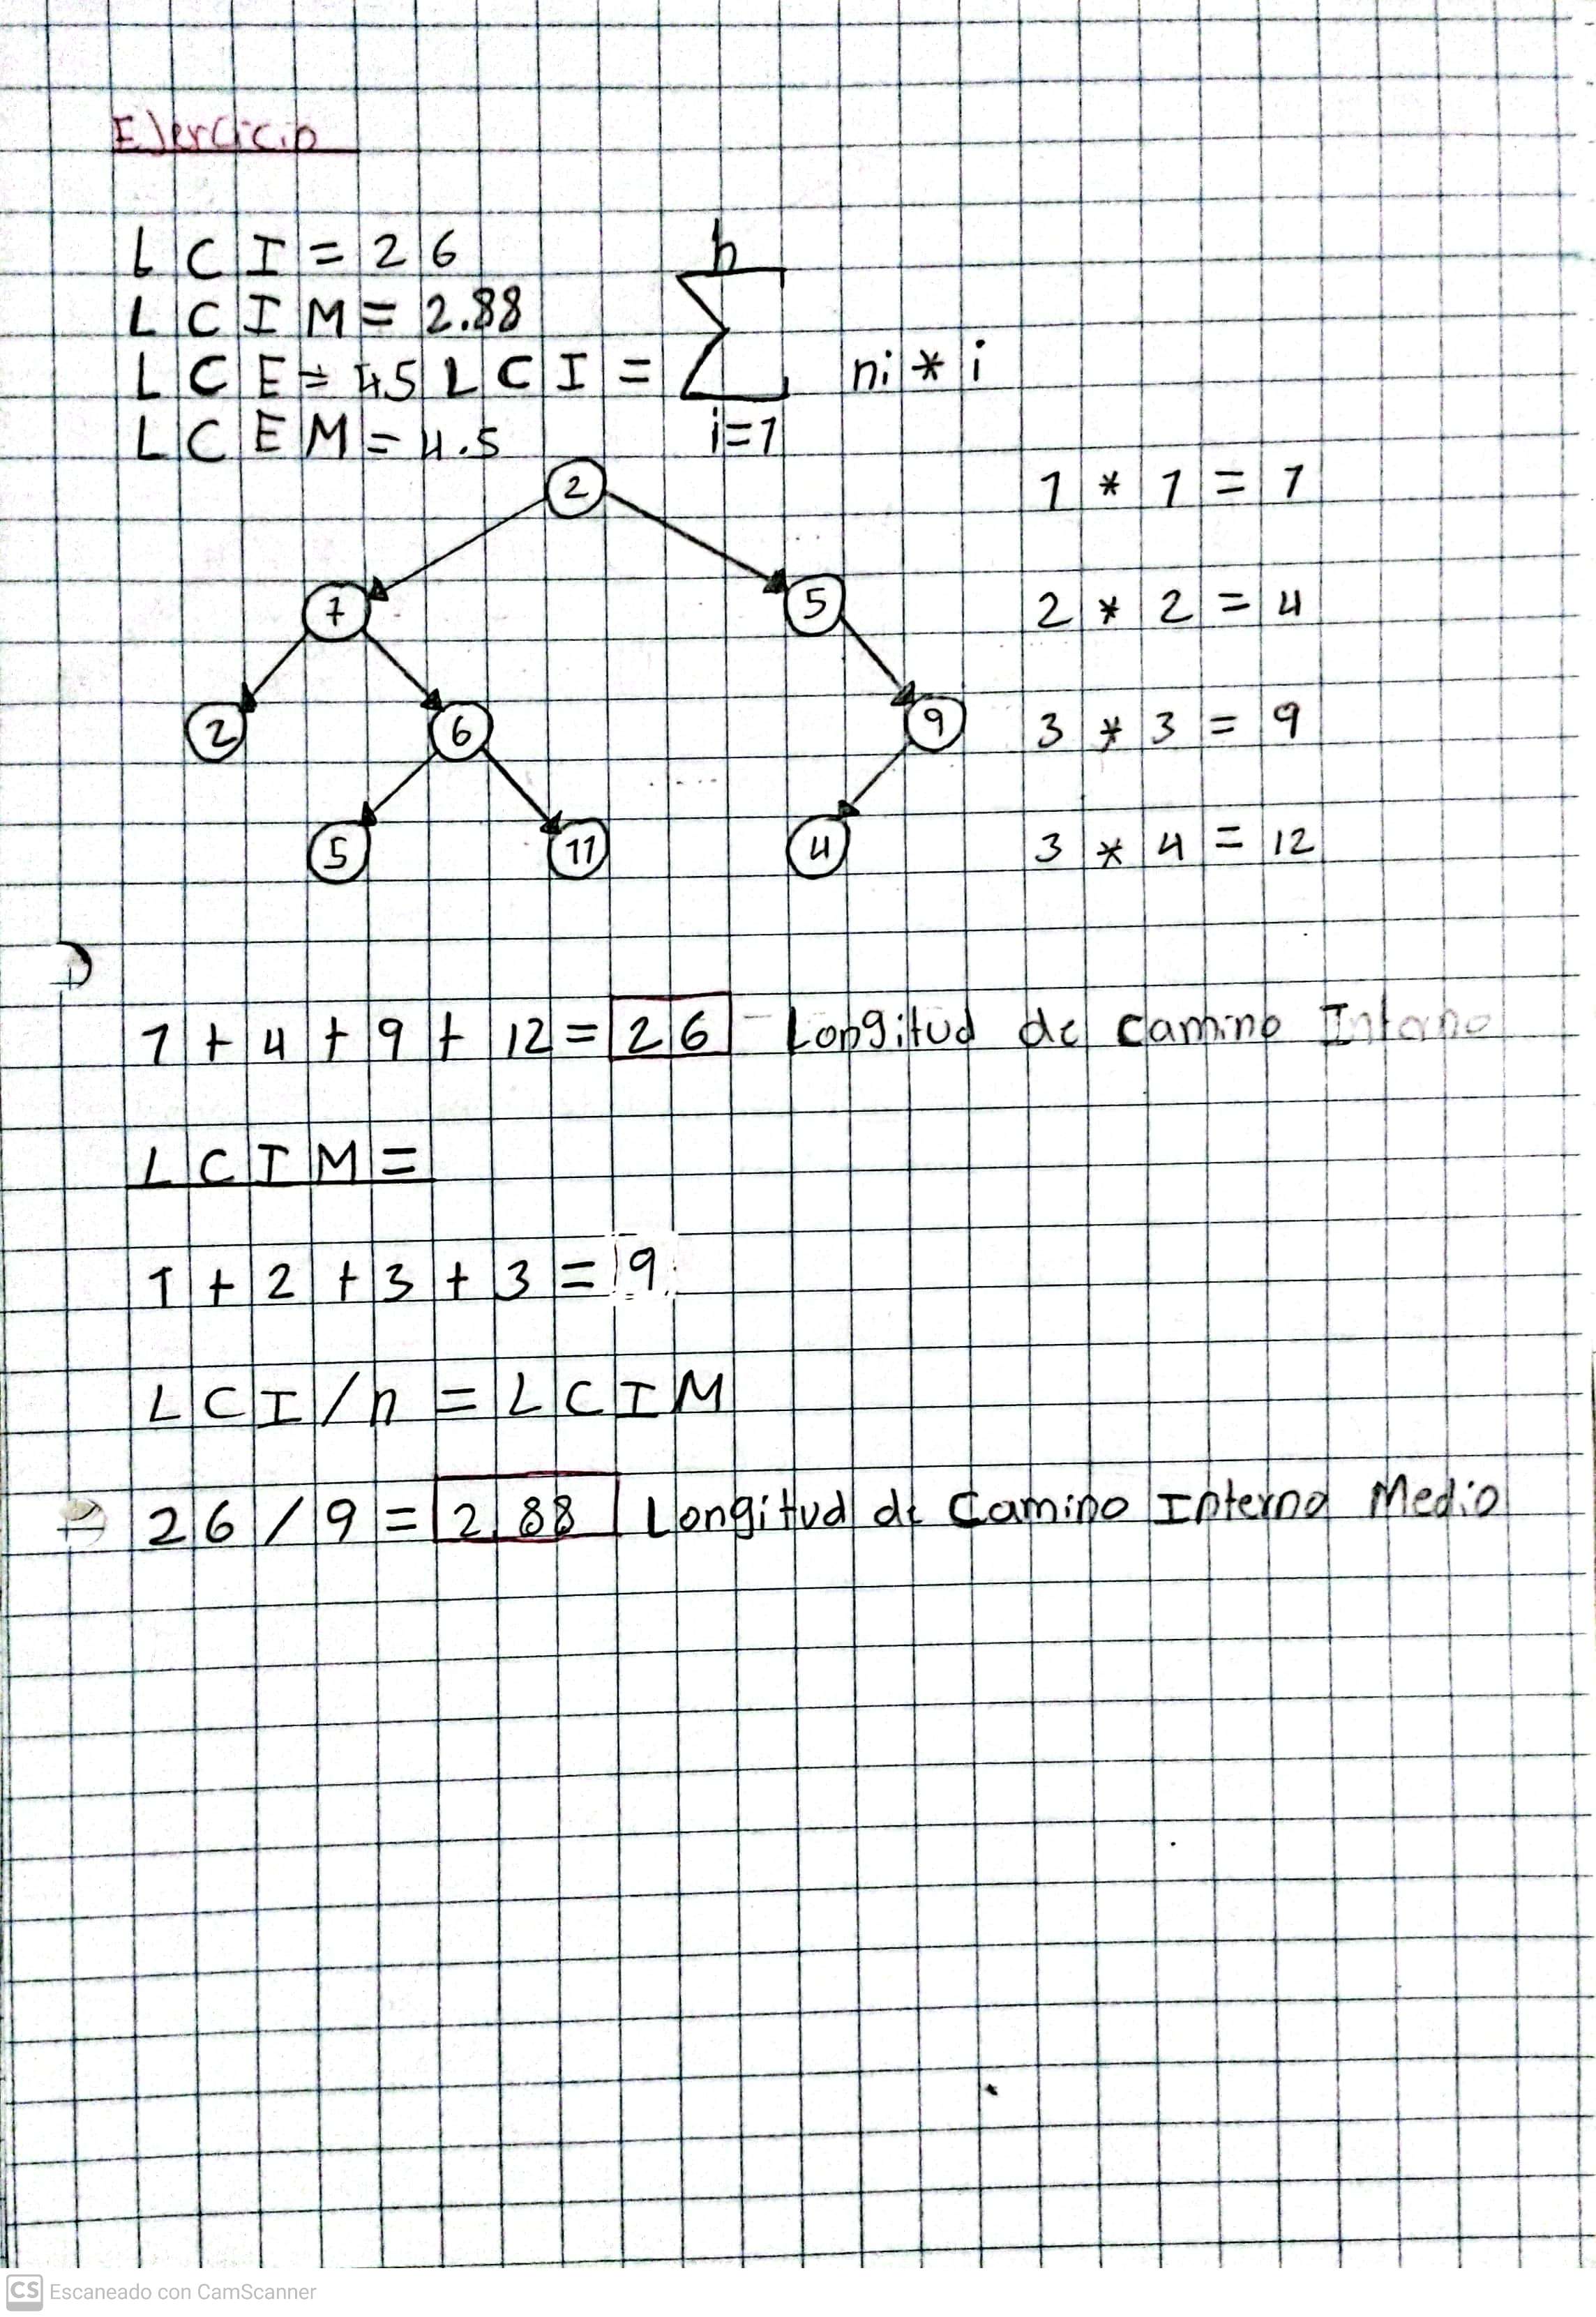 Ejercicio
LCI = 26
LCIM = 2.88
LCE = 45 LCI = Σ ni * i
h
i=1
LCEM = 4.5
2
1 * 1 = 1
7 5
2 * 2 = 4
2 6 9
3 * 3 = 9
5 11 4
3 * 4 = 12
1 + 4 + 9 + 12 = 26 - Longitud de camino Interno
LCIM =
1 + 2 + 3 + 3 = 9
LCI/n = LCIM
26 / 9 = 2.88 Longitud de Camino Interno Medio
CS Escaneado con CamScanner